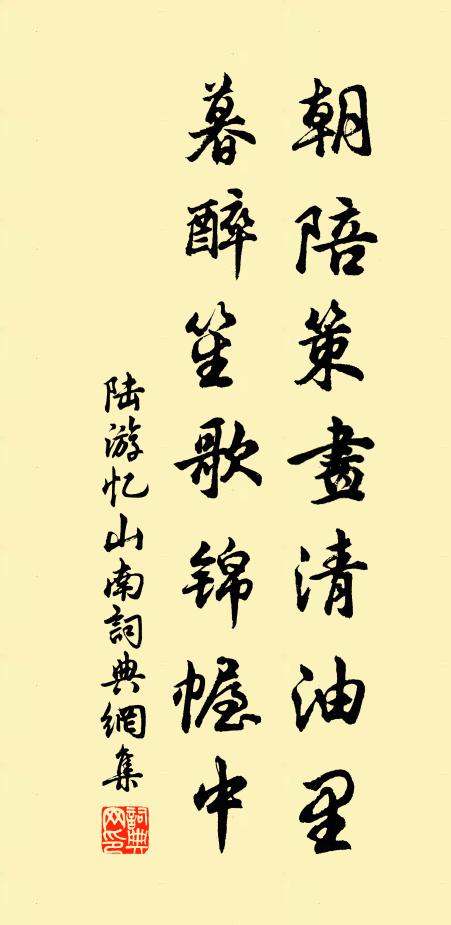 朝陪策畫清油里
暮醉笙歌锦幄中
陆游忆山南詞典網集
詞典网印